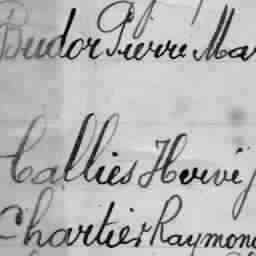 Budor Pierre Mar
Callies Hervé J
Chartier Raymond